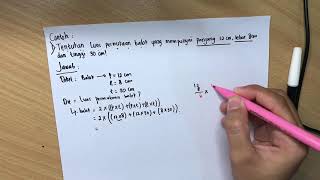 Contoh :
1) Tentukan luas permukaan balok yang mempunyai panjang 12 cm, lebar 8 cm
dan tinggi 30 cm!
Jawab.
Dik : Balok → p = 12 cm
l = 8 cm
t = 30 cm
Dit = Luas permukaan balok ?
Lp. balok = 2 × ((p×l) + (p×t) + (l×t))
= 2 × ((12×8) + (12×30) + (8×30))
=
12
8 ×